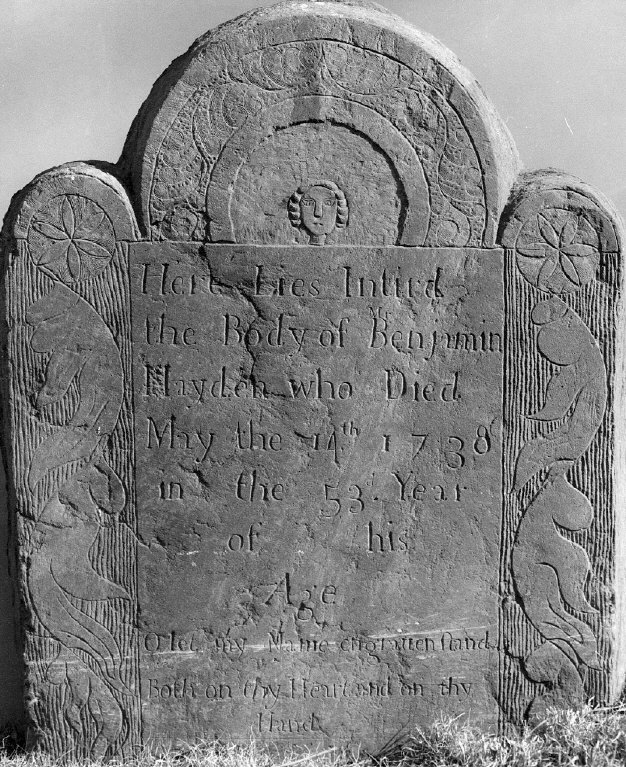 Here Lies Intird
the Body of Benjamin
Hayden who Died
May the 14th 1738
in the 53d Year
of his
Age
O let my Name engraven stand
Both on thy Heart and on thy
Hand